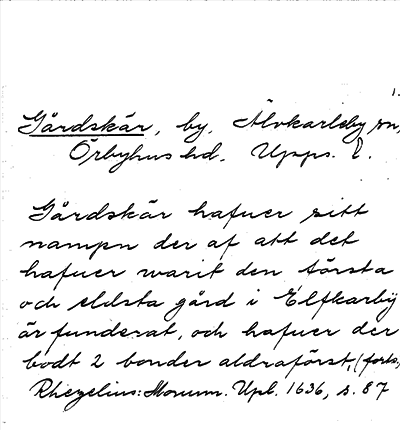 1.
Gårdskär, by, Älvkarleby sn,
Örbyhus hd. Upps. l.
Gårdskär hafuer sitt
nampn der af att det
hafuer warit den första
och eldsta gård i Elfkarbÿ
är funderat, och hafuer der
bodt 2 bonder aldraförst, (forts.
Rhezelius: Monum. Upl. 1636, s. 87